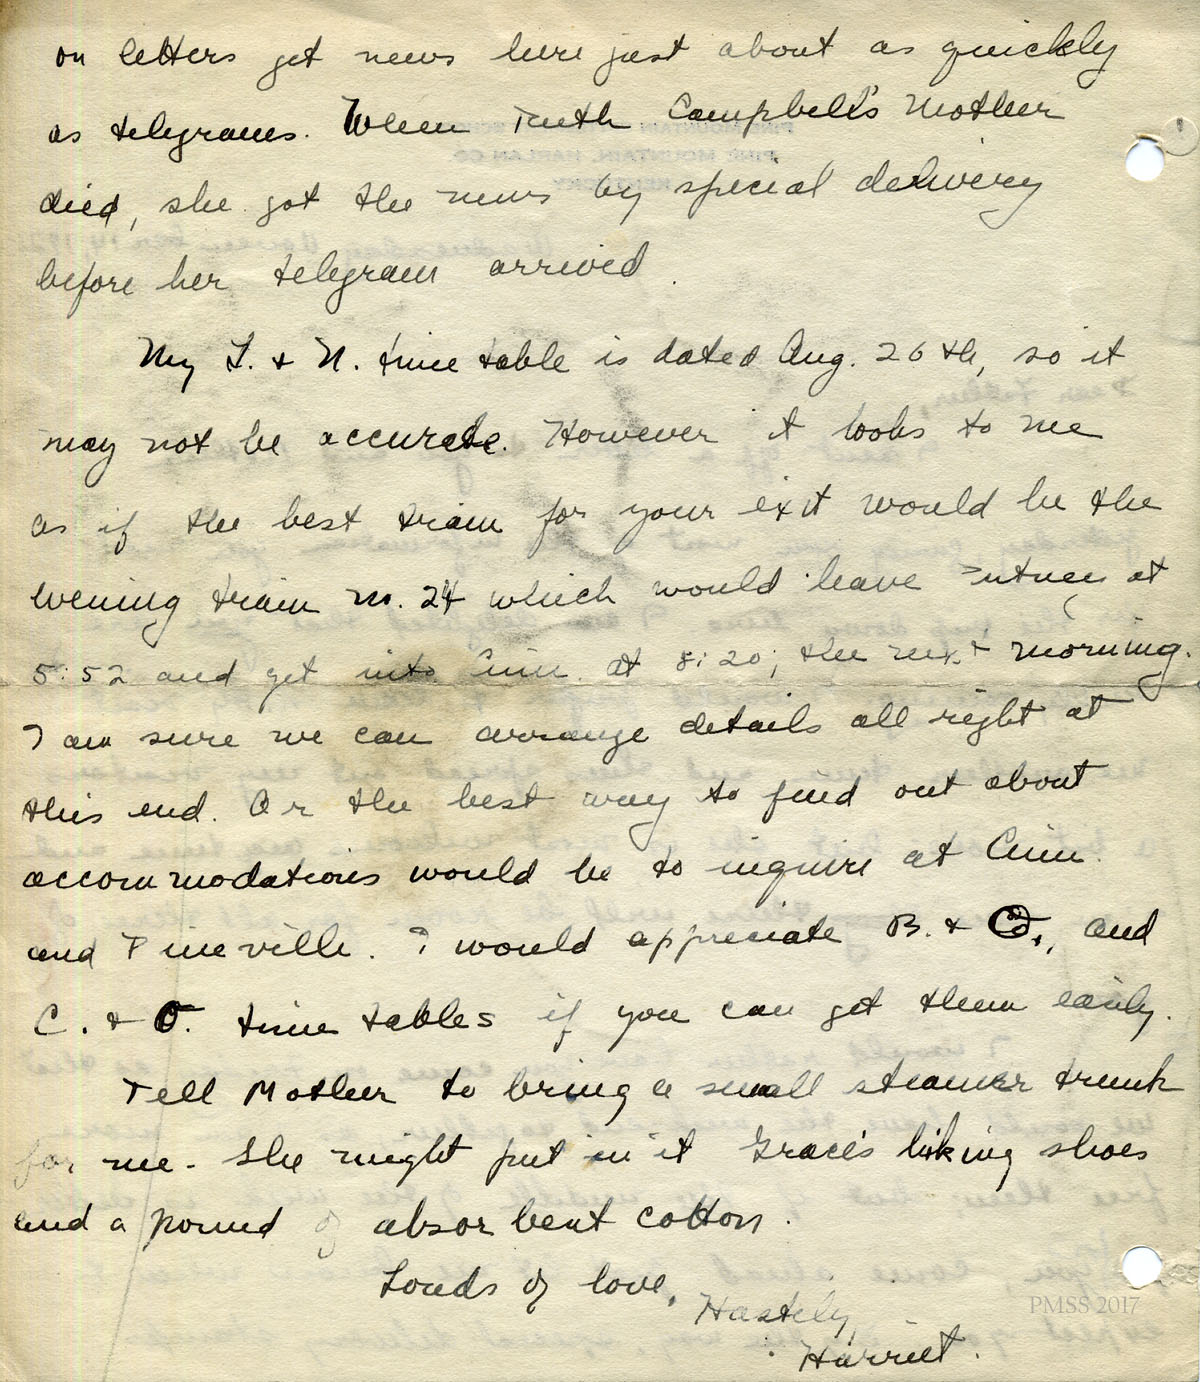 on letters get news here just about as quickly
as telegrams. When Ruth Campbell's Mother
died, she got the news by special delivery
before her telegram arrived.
My L. & N. time table is dated Aug. 26th, so it
may not be accurate. However it looks to me
as if the best train for your exit would be the
evening train no. 24 which would leave Putney at
5:52 and get into Cinn. at 8:20, the next morning.
I am sure we can arrange details all right at
this end. Or the best way to find out about
accommodations would be to inquire at Cinn.
and Pineville. I would appreciate B. & O., and
C. & O. time tables if you can get them easily.
Tell Mother to bring a small steamer trunk
for me. She might put in it Grace's hiking shoes
and a pound of absorbent cotton.
Loads of love,
Hastily,
Harriet.
PMSS 2017